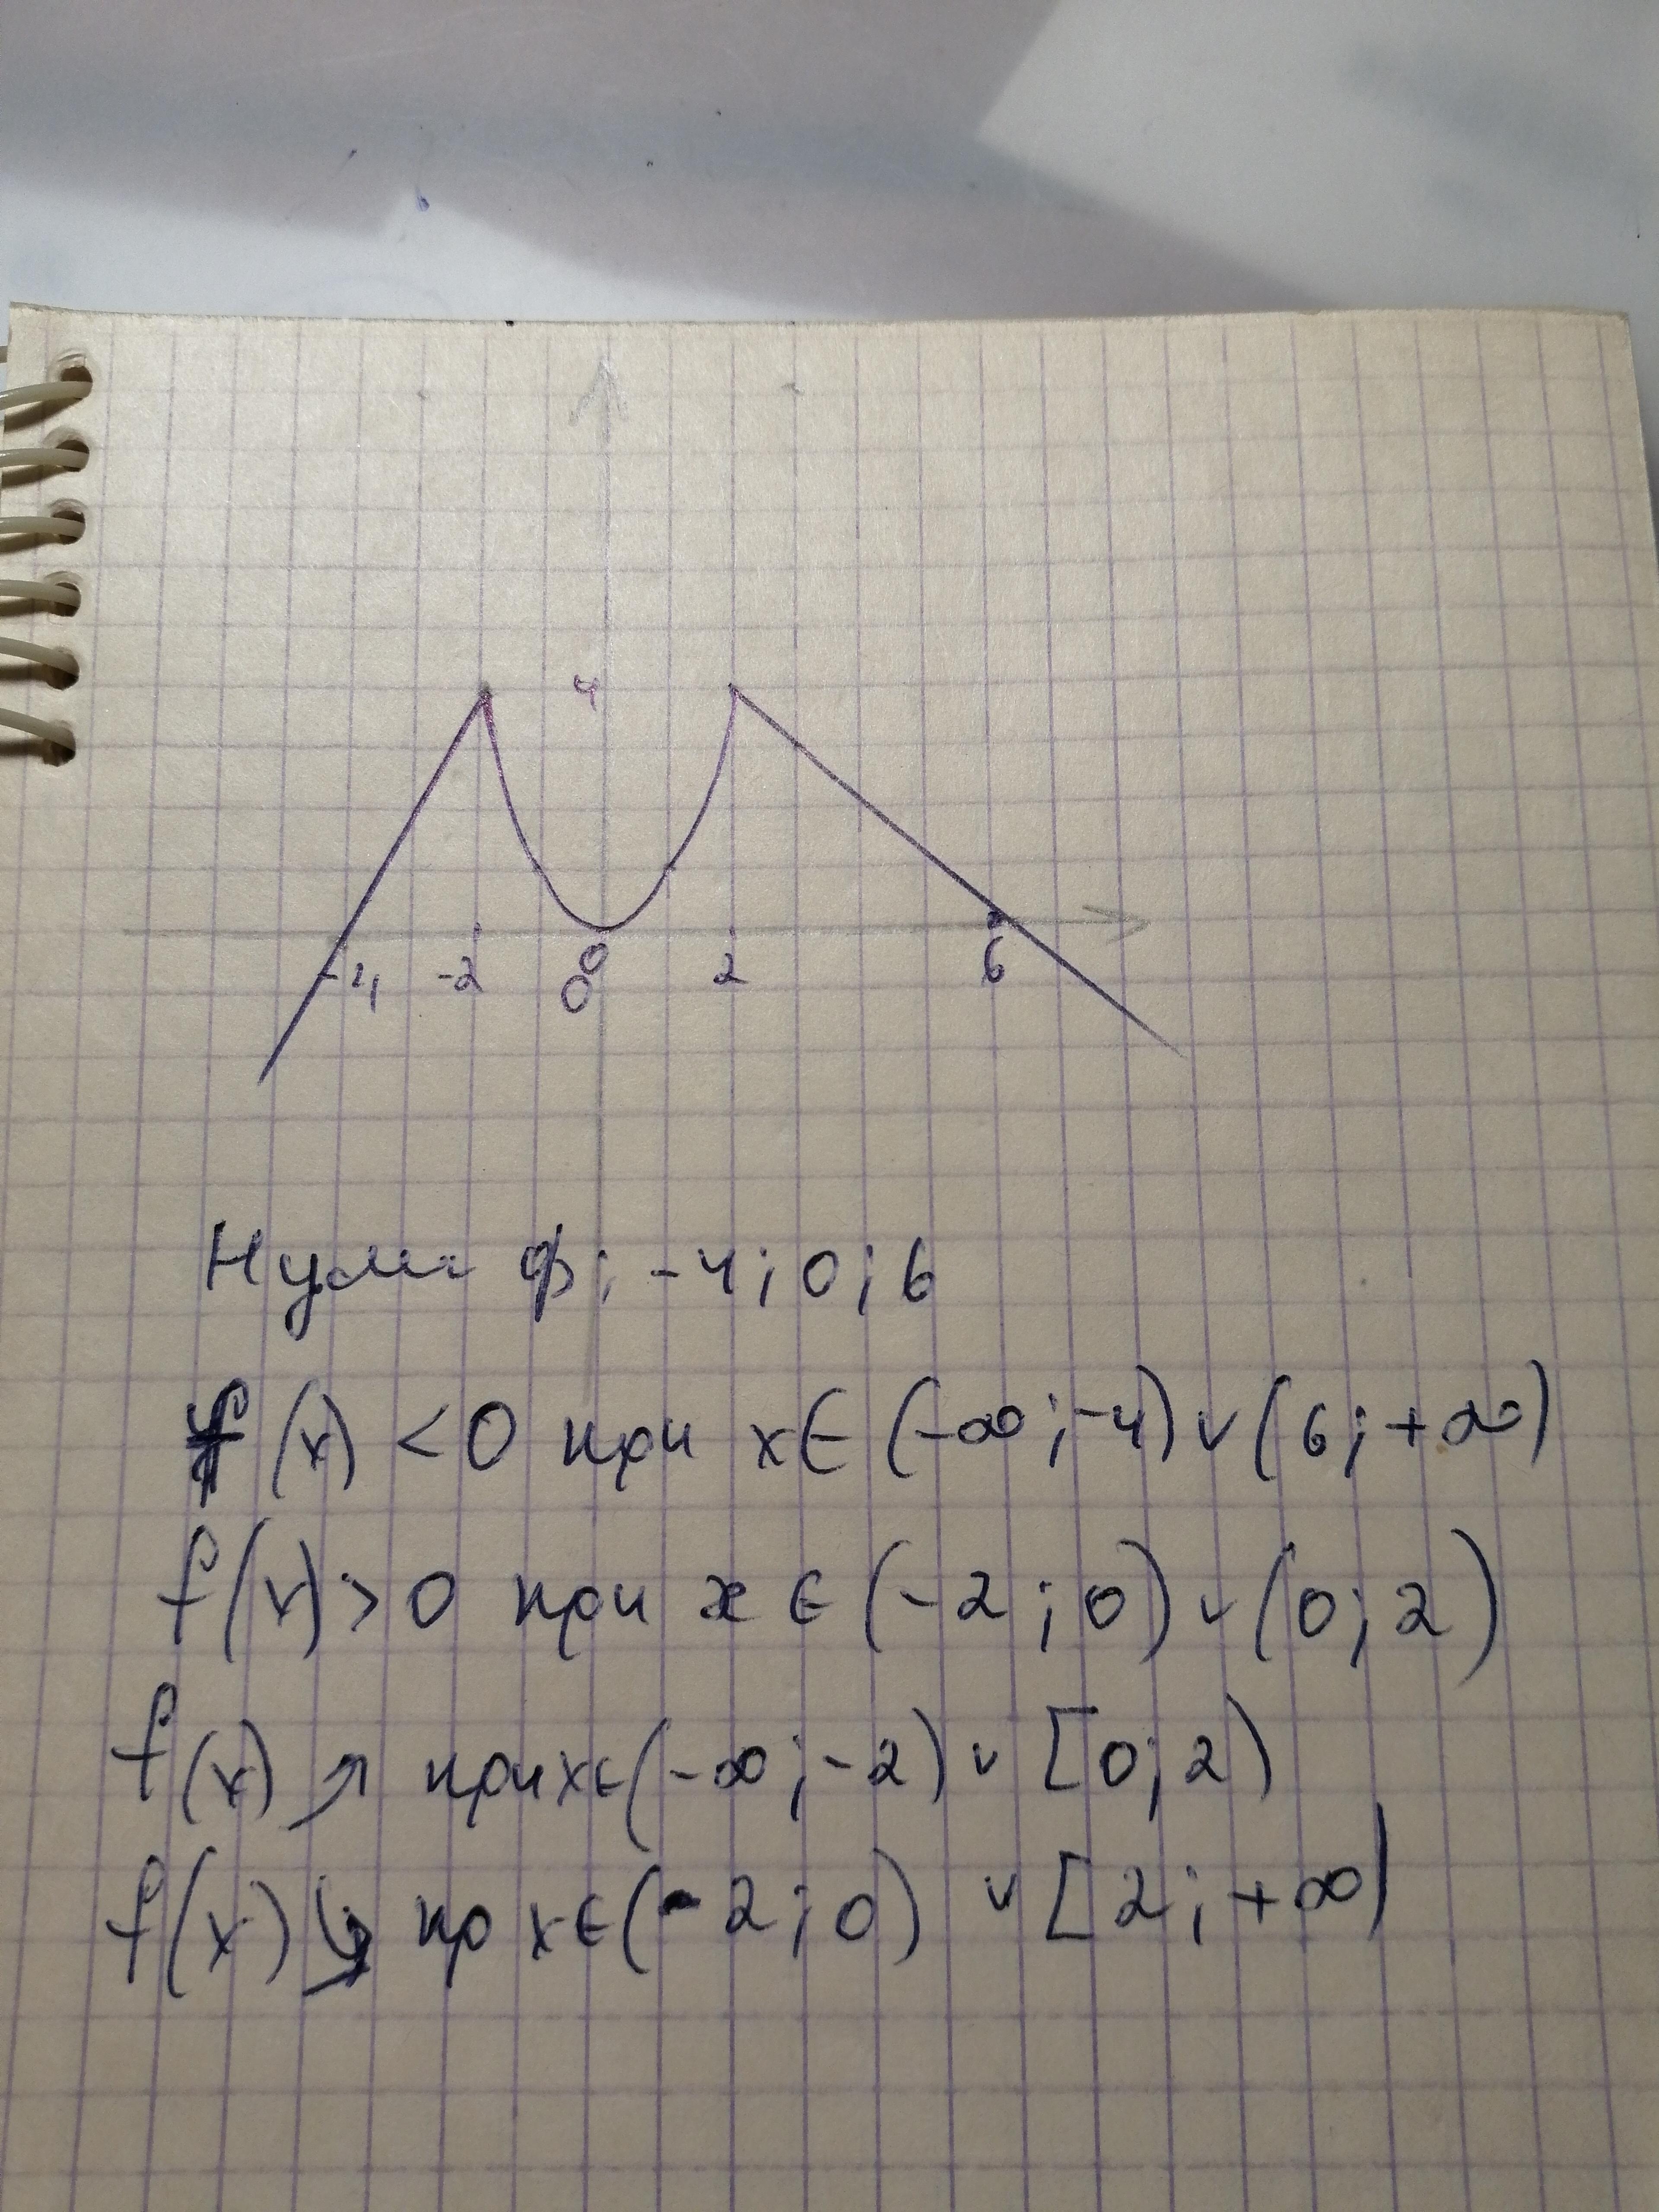 4
-4 -2 0 2 6
0
Нули ф; -4; 0; 6
f(x) < 0 при x ∈ (-∞; -4) ∨ (6; +∞)
f(x) > 0 при x ∈ (-2; 0) ∨ (0; 2)
f(x) ↗ при x ∈ (-∞; -2) ∨ [0; 2)
f(x) ↘ пр x ∈ (-2; 0) ∨ [2; +∞)